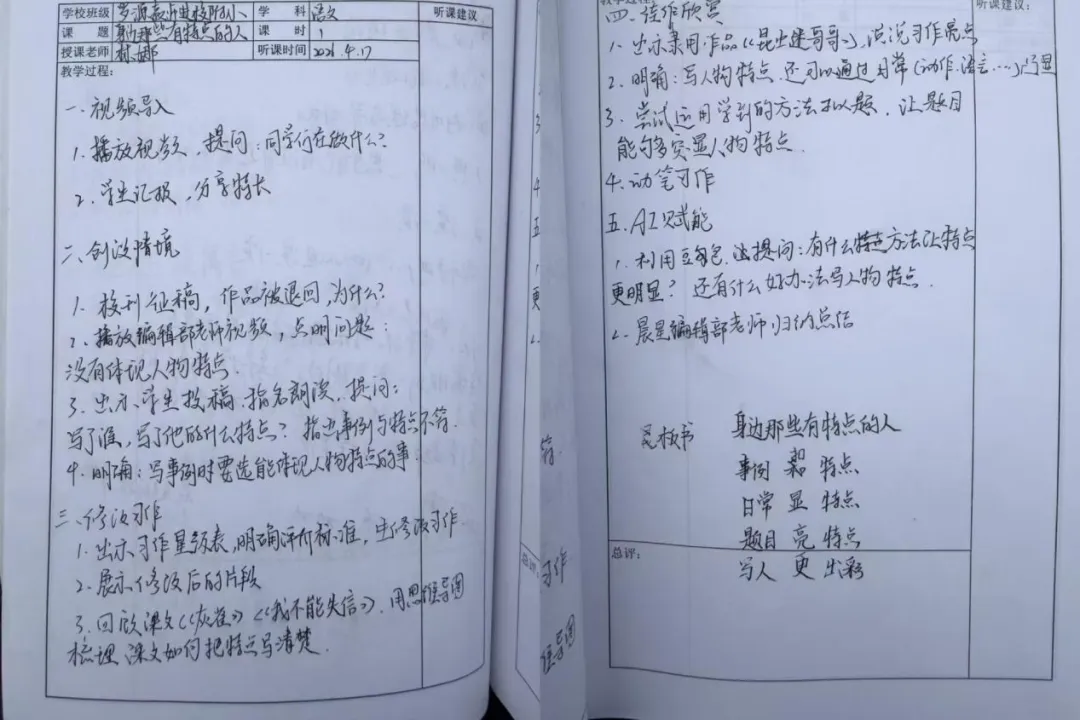 学校班级
学 科 语文
听课建议
课 题 身边那些有特点的人
课 时 1
授课老师 林娜
听课时间 2026.4.17
教学过程:
一、视频导入
1. 播放视频，提问:同学们在做什么?
2. 学生汇报，分享特长
二、创设情境
1. 校刊征稿，作品被退回，为什么?
2. 播放编辑部老师视频，点明问题:
没有体现人物特点.
3. 出示学生投稿.指名朗读，提问:
写了谁，写了他的什么特点? 指出事例与特点不符.
4. 明确:写事例时要选能体现人物特点的事.
三、修改习作
1. 出示习作星级表，明确评价标准，生修改习作.
2. 展示修改后的片段
3. 回顾课文《灰雀》《我不能失信》，用思维导图
梳理课文如何把特点写清楚.
教学过程:
听课建议:
四、佳作欣赏
1. 出示录用作品《昆虫迷哥哥》，说说习作亮点
2. 明确:写人物特点，还可以通过日常(动作.语言…)凸显
3. 尝试运用学到的方法拟题，让题目
能够突显人物特点.
4. 动笔习作
五、AI赋能
1. 利用豆包.提问:有什么方法让特点
更明显? 还有什么好办法写人物特点.
2. 晨星编辑部老师归纳总结
板书
身边那些有特点的人
事例 特点
日常 显 特点
题目 亮 特点
总评:
写人 更 出彩